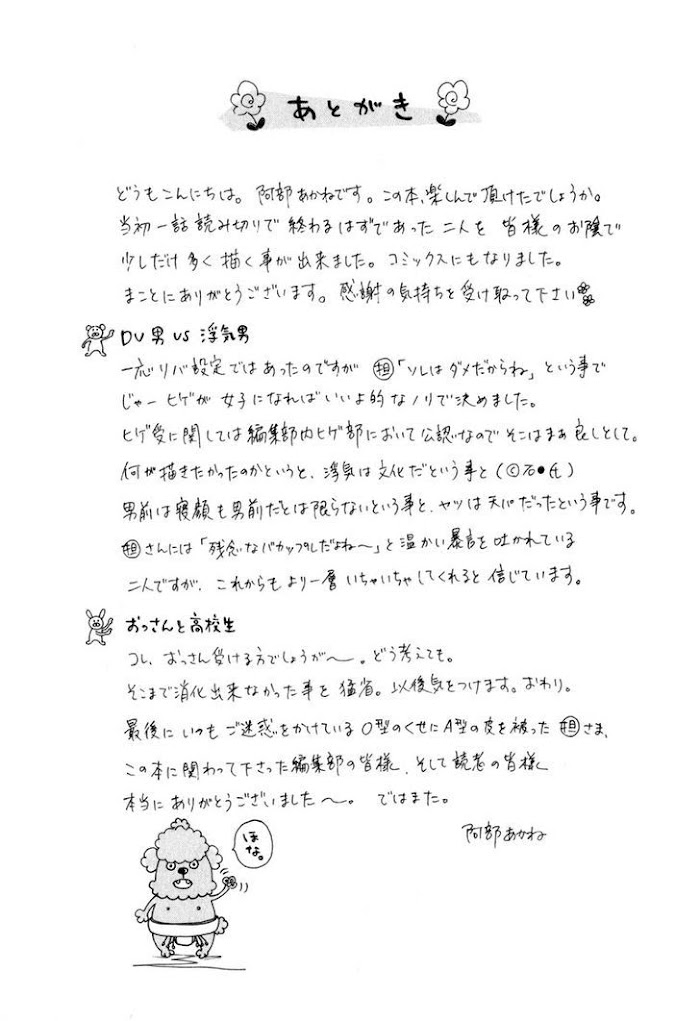 あとがき
どうもこんにちは。阿部あかねです。この本、楽しんで頂けたでしょうか。
当初一話読み切りで終わるはずであった二人を皆様のお陰で
少しだけ多く描く事が出来ました。コミックスにもなりました。
まことにありがとうございます。感謝の気持ちを受け取って下さい
DV男VS浮気男
一応リバ設定ではあったのですが 担「ソレはダメだからね」という事で
じゃーヒゲが女子になればいいよ的なノリで決めました。
ヒゲ受に関しては編集部内ヒゲ部において公認なのでそこはまあ良しとして。
何が描きたかったのかというと、浮気は文化だという事と(©石●氏)
男前は寝顔も男前だとは限らないという事と、ヤツは天パだったという事です。
担さんには「残念なバカップルだよね〜」と温かい暴言を吐かれている
二人ですが、これからもより一層いちゃいちゃしてくれると信じています。
おっさんと高校生
コレ、おっさん受ける方でしょうが〜。どう考えても。
そこまで消化出来なかった事を猛省。以後気をつけます。おわり。
最後にいつもご迷惑をかけているO型のくせにA型の皮を被った担さま、
この本に関わって下さった編集部の皆様、そして読者の皆様
本当にありがとうございました〜。ではまた。
阿部あかね
ほな。